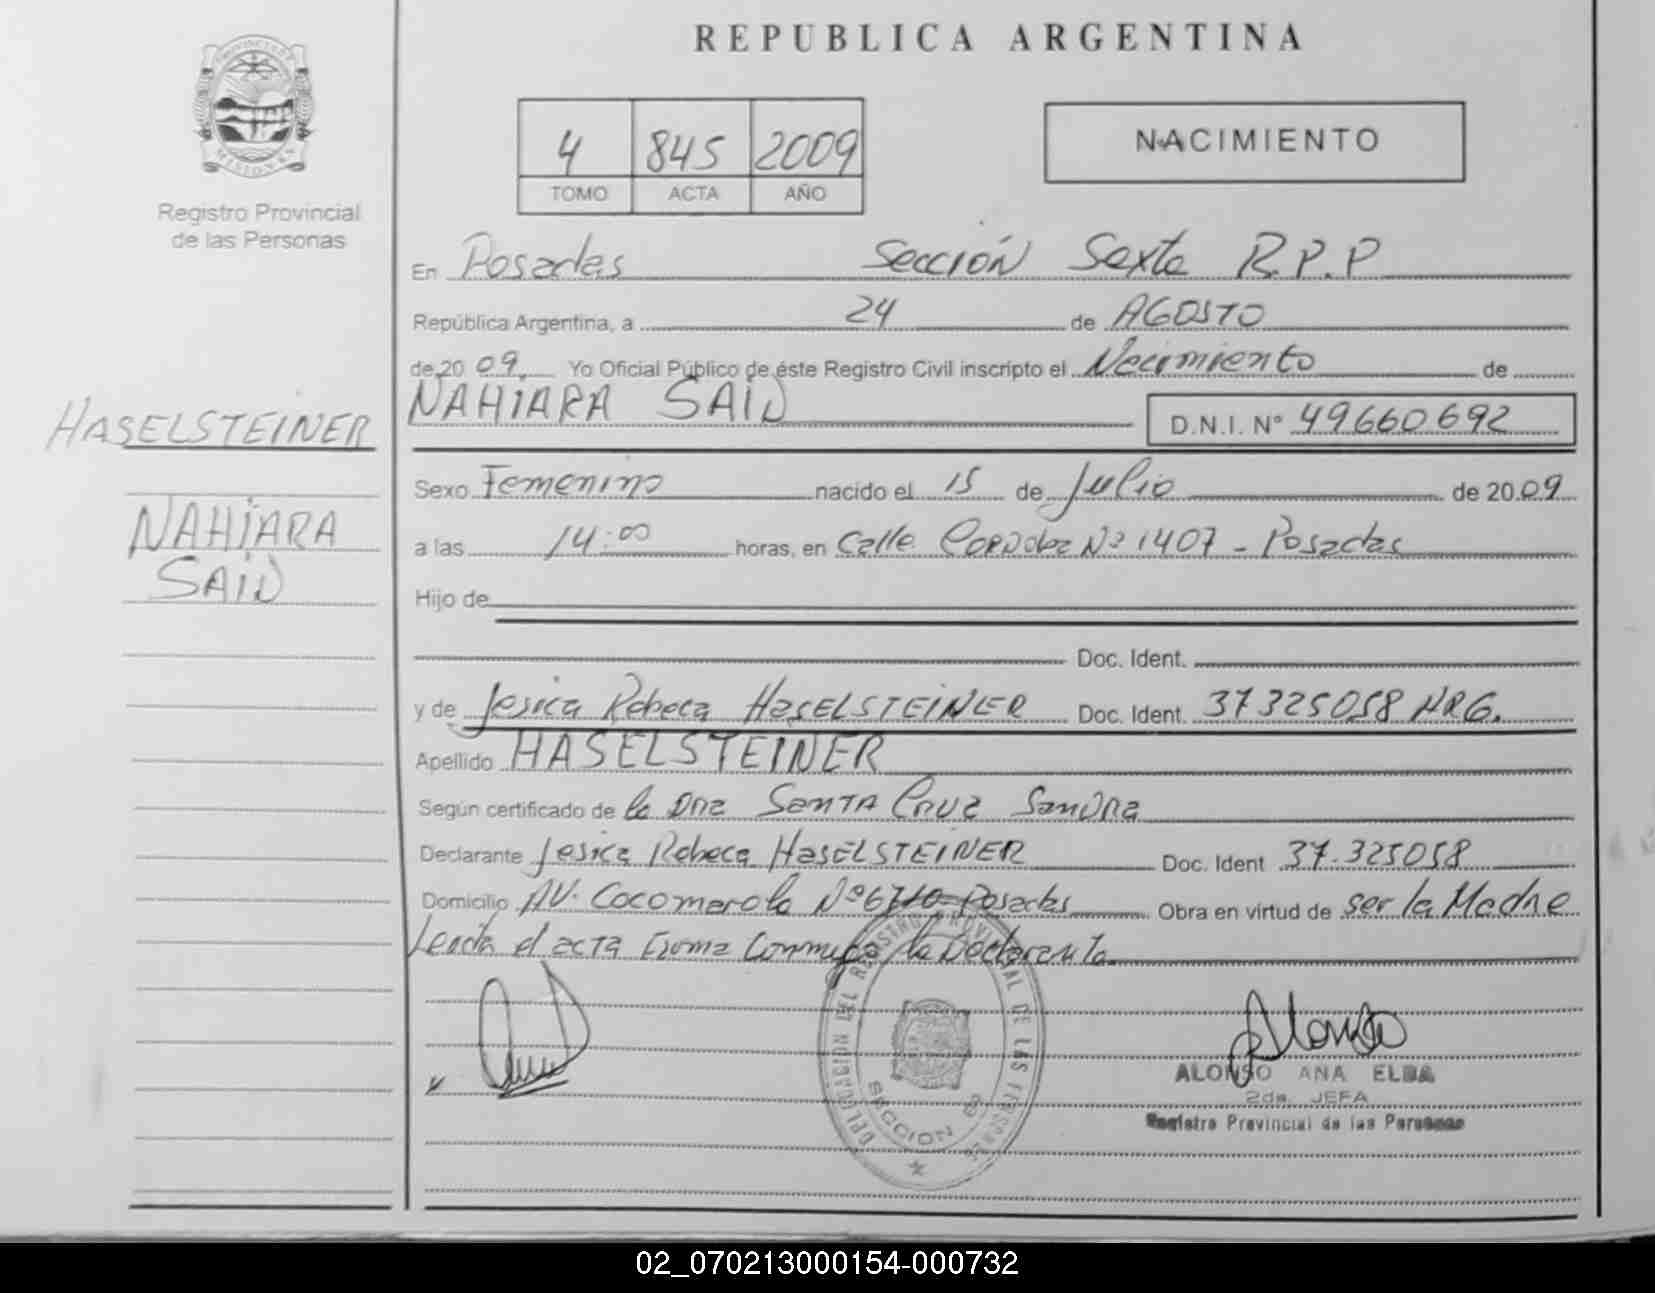 REPUBLICA ARGENTINA
PROVINCIA DE
MISIONES
Registro Provincial
de las Personas
4 845 2009
TOMO ACTA AÑO
NACIMIENTO
En Posadas Sección Sexta R.P.P
República Argentina, a 24 de AGOSTO
de 20 09. Yo Oficial Público de éste Registro Civil inscripto el Nacimiento de
NAHIARA SAID D.N.I. N° 49660692
HASELSTEINER
NAHIARA
SAID
Sexo Femenino nacido el 15 de Julio de 20 09
a las 14:00 horas, en Calle Cordoba Nº 1407 - Posadas
Hijo de
Doc. Ident.
y de Jesica Rebeca HASELSTEINER Doc. Ident. 37325058 ARG.
Apellido HASELSTEINER
Según certificado de la Dra SANTA CRUZ Sandra
Declarante Jesica Rebeca HASELSTEINER Doc. Ident 37.325058
Domicilio AV. Cocomarola Nº Posadas Obra en virtud de ser la Madre
Leida el acta Firma Conmigo la Declarante
DELEGACION DEL REGISTRO PROVINCIAL DE LAS PERSONAS
SECCION 6º
ALONSO ANA ELBA
2da. JEFA
Registro Provincial de las Personas
02_070213000154-000732